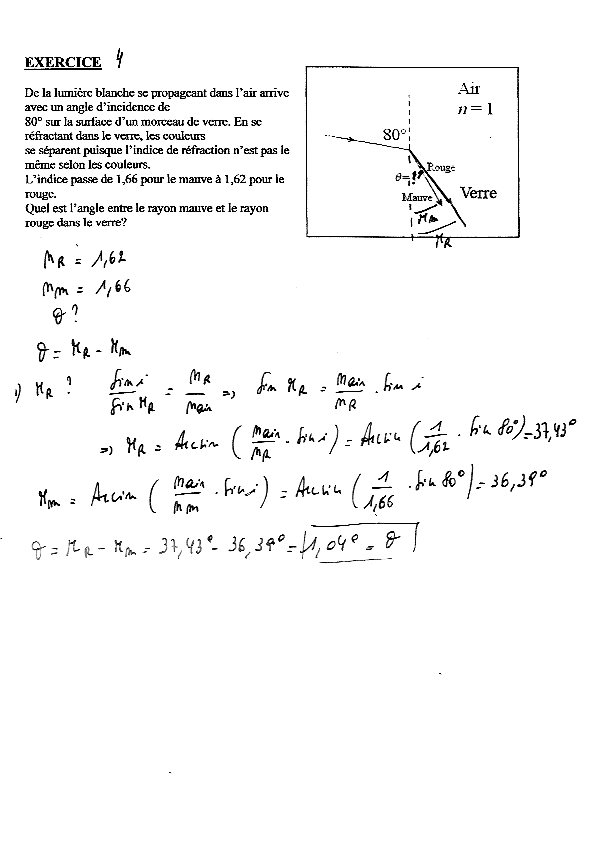 EXERCICE 4
De la lumière blanche se propageant dans l'air arrive
avec un angle d'incidence de
80° sur la surface d'un morceau de verre. En se
réfractant dans le verre, les couleurs
se séparent puisque l'indice de réfraction n'est pas le
même selon les couleurs.
L'indice passe de 1,66 pour le mauve à 1,62 pour le
rouge.
Quel est l'angle entre le rayon mauve et le rayon
rouge dans le verre?
Air
n = 1
80°
Rouge
θ=?
Mauve
Verre
r_m
r_R
n_R = 1,62
n_m = 1,66
θ ?
θ = r_R - r_m
1) r_R ? sin i / sin r_R = n_R / n_air => sin r_R = n_air / n_R · sin i
=> r_R = Arcsin ( n_air / n_R · sin i ) = Arcsin ( 1 / 1,62 · sin 80° ) = 37,43°
r_m = Arcsin ( n_air / n_m · sin i ) = Arcsin ( 1 / 1,66 · sin 80° ) = 36,39°
θ = r_R - r_m = 37,43° - 36,39° = 1,04° = θ